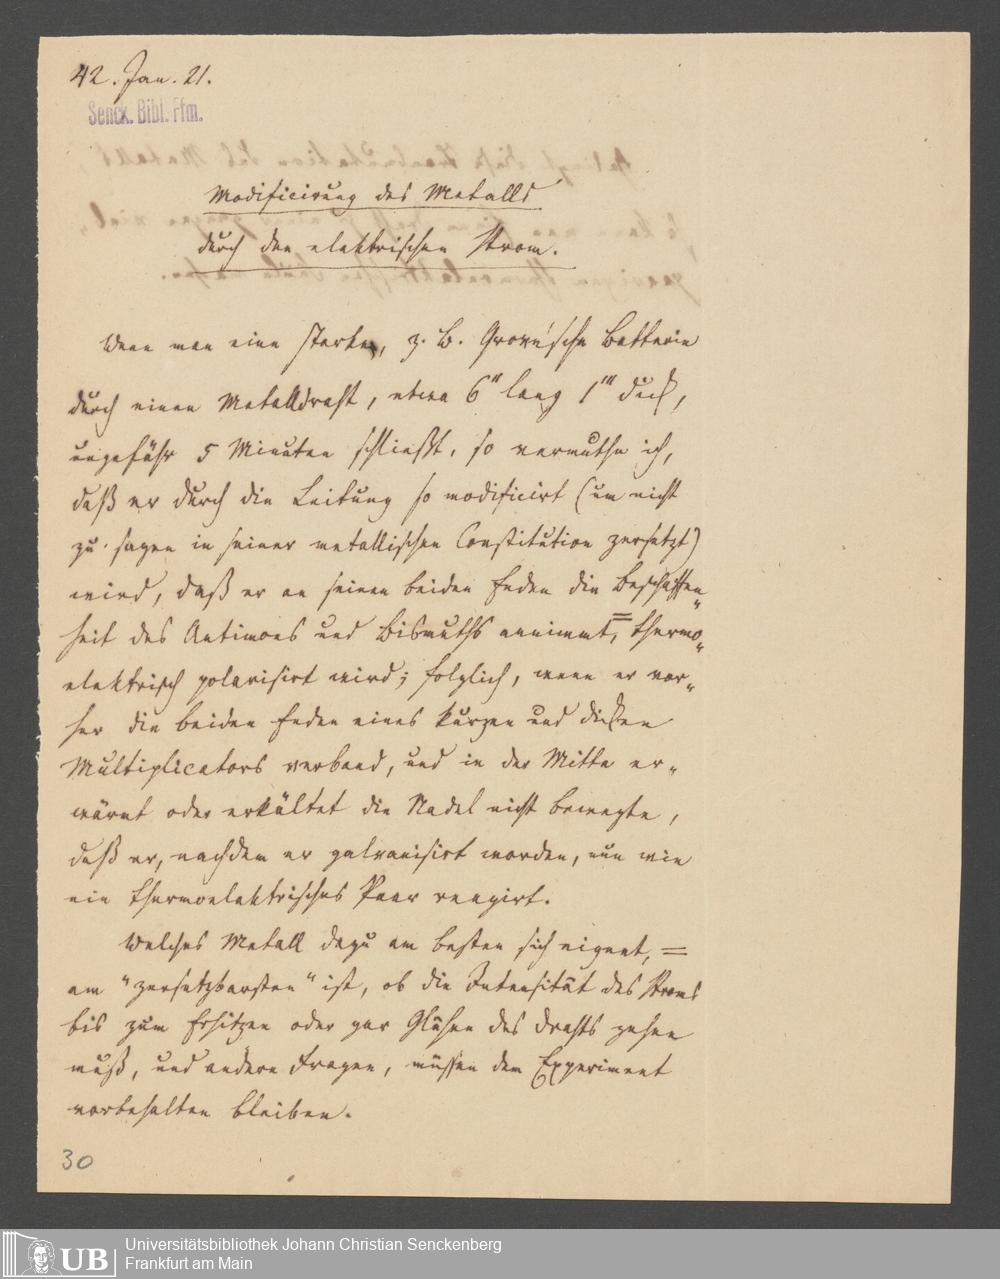 42. Jan. 21.
Senck. Bibl. Ffm.
Modificirung des Metalls
durch den elektrischen Strom.
Wenn man eine starke, z. B. Grove'sche Batterie
durch einen Metalldraht, etwa 6" lang 1"' dick,
ungefähr 5 Minuten schließt, so vermuthe ich,
daß er durch die Leitung so modificirt (um nicht
zu sagen in seiner metallischen Constitution zersetzt)
wird, daß er an seinen beiden Enden die Beschaffen„
heit des Antimons und Bismuths annimmt, = thermo„
elektrisch polarisirt wird; folglich, wenn er vor„
her die beiden Enden eines kurzen und dicken
Multiplicators verband, und in der Mitte er„
wärmt oder erkältet die Nadel nicht bewegte,
daß er, nachdem er galvanisirt worden, nun wie
ein thermoelektrisches Paar reagirt.
Welches Metall dazu am besten sich eignet, =
am "zersetzbarsten" ist, ob die Intensität des Stroms
bis zum Erhitzen oder gar Glühen des Drahts gehen
muß, und andere Fragen, müssen dem Experiment
vorbehalten bleiben.
30
UB Universitätsbibliothek Johann Christian Senckenberg
Frankfurt am Main